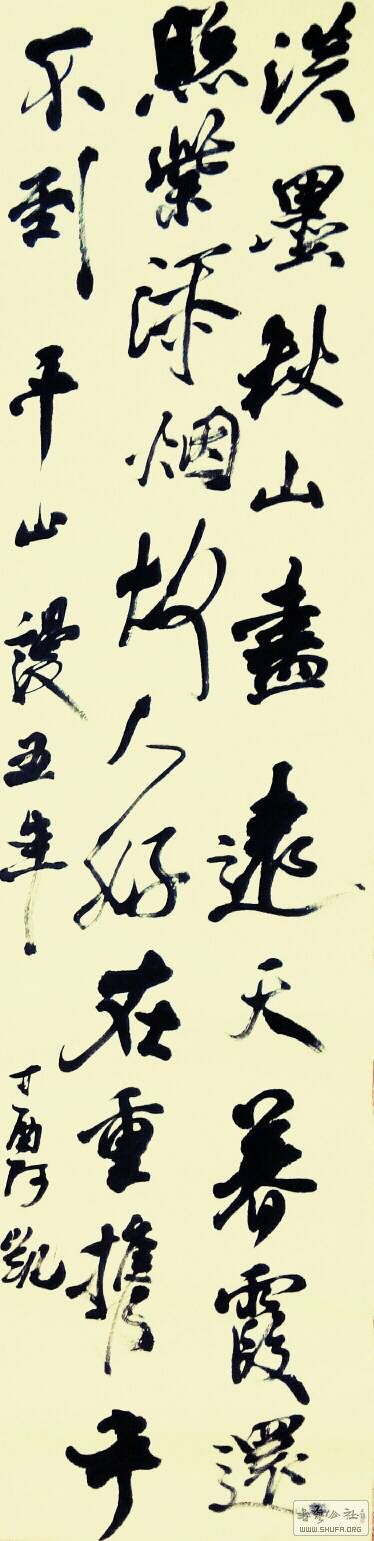 淡墨秋山盡遠天暮霞還
照紫添烟故人好在重携手
不到平山謾五年
丁酉阿凱
WWW.SHUFA.ORG